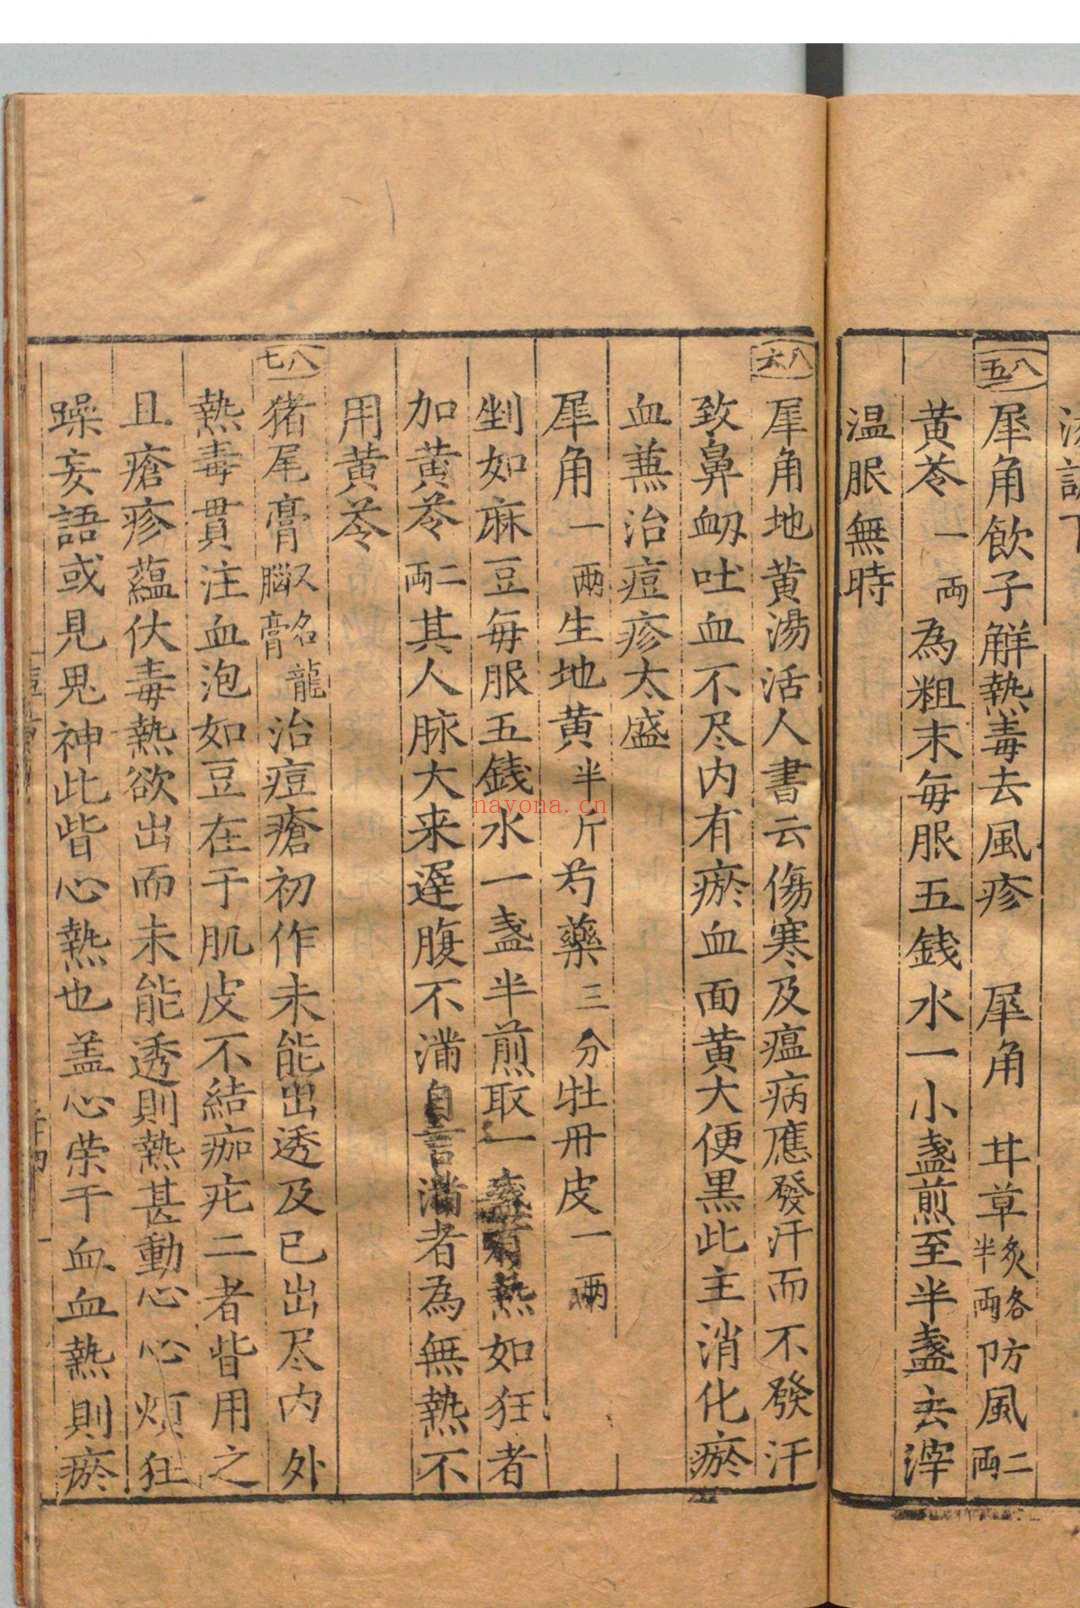 八五
犀角飲子解熱毒去風疹　犀角　甘草炙各半兩防風二兩
黄芩一兩為粗末每服五錢水一小盞煎至半盞去滓
温服無時
八六
犀角地黄湯活人書云傷寒及瘟病應發汗而不發汗
致鼻衂吐血不尽内有瘀血面黄大便黒此主消化瘀
血兼治痘疹太盛
犀角一兩生地黄半斤芍藥三分牡丹皮一兩
剉如麻豆每服五錢水一盞半煎取一盞有熱如狂者
加黄芩二兩其人脉大来遲腹不滿自言滿者為無熱不
用黄芩
八七
猪尾膏又名龍腦膏治痘瘡初作未能出透及已出尽内外
熱毒貫注血泡如豆在于肌皮不結痂疕二者皆用之
且瘡疹蘊伏毒熱欲出而未能透則熱甚動心心煩狂
躁妄語或見鬼神此皆心熱也盖心荣于血血熱則瘀
nayona.cn